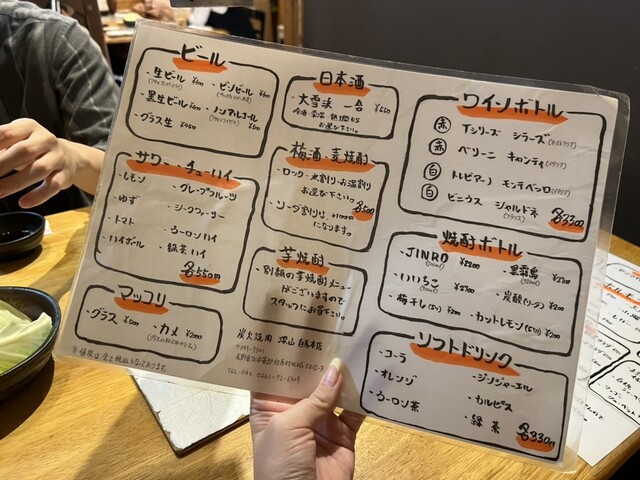 ビール
・生ビール ¥600
・ビンビール ¥600
・黒生ビール ¥600
・ノンアルコール ¥500
・グラス生 ¥450
サワー・チューハイ
・レモン
・グレープフルーツ
・ゆず
・シークワーサー
・トマト
・ウーロンハイ
・ハイボール
・緑茶ハイ
各550円
マッコリ
・グラス ¥500
・カメ ¥2000
日本酒
・大雪渓 一合 ¥550
お選び下さい。
梅酒・麦焼酎
・ロック・水割り・お湯割り
お選び下さい。
各500
・ソーダ割りは、+100円
になります。
芋焼酎
・別紙の芋焼酎メニュー
がございますので
スタッフにお音下さい。
炭火焼肉 深山 白馬本店
TEL・FAX 0261-72-6309
ワインボトル
赤 Tシリーズ シラーズ
赤 ベリーニ キャンティ(イタリア)
白 トレビアーノ モンテベッロ(イタリア)
白 ビニウス シャルドネ(フランス)
各3300
焼酎ボトル
・JINRO ¥2200
・黒霧島 ¥2700
・いいちこ ¥2700
・炭酸(ソーダ) ¥200
・梅干し(5ヶ) ¥200
・カットレモン(5ヶ) ¥200
ソフトドリンク
・コーラ
・ジンジャーエール
・オレンジ
・カルピス
・ウーロン茶
・緑茶
各330円